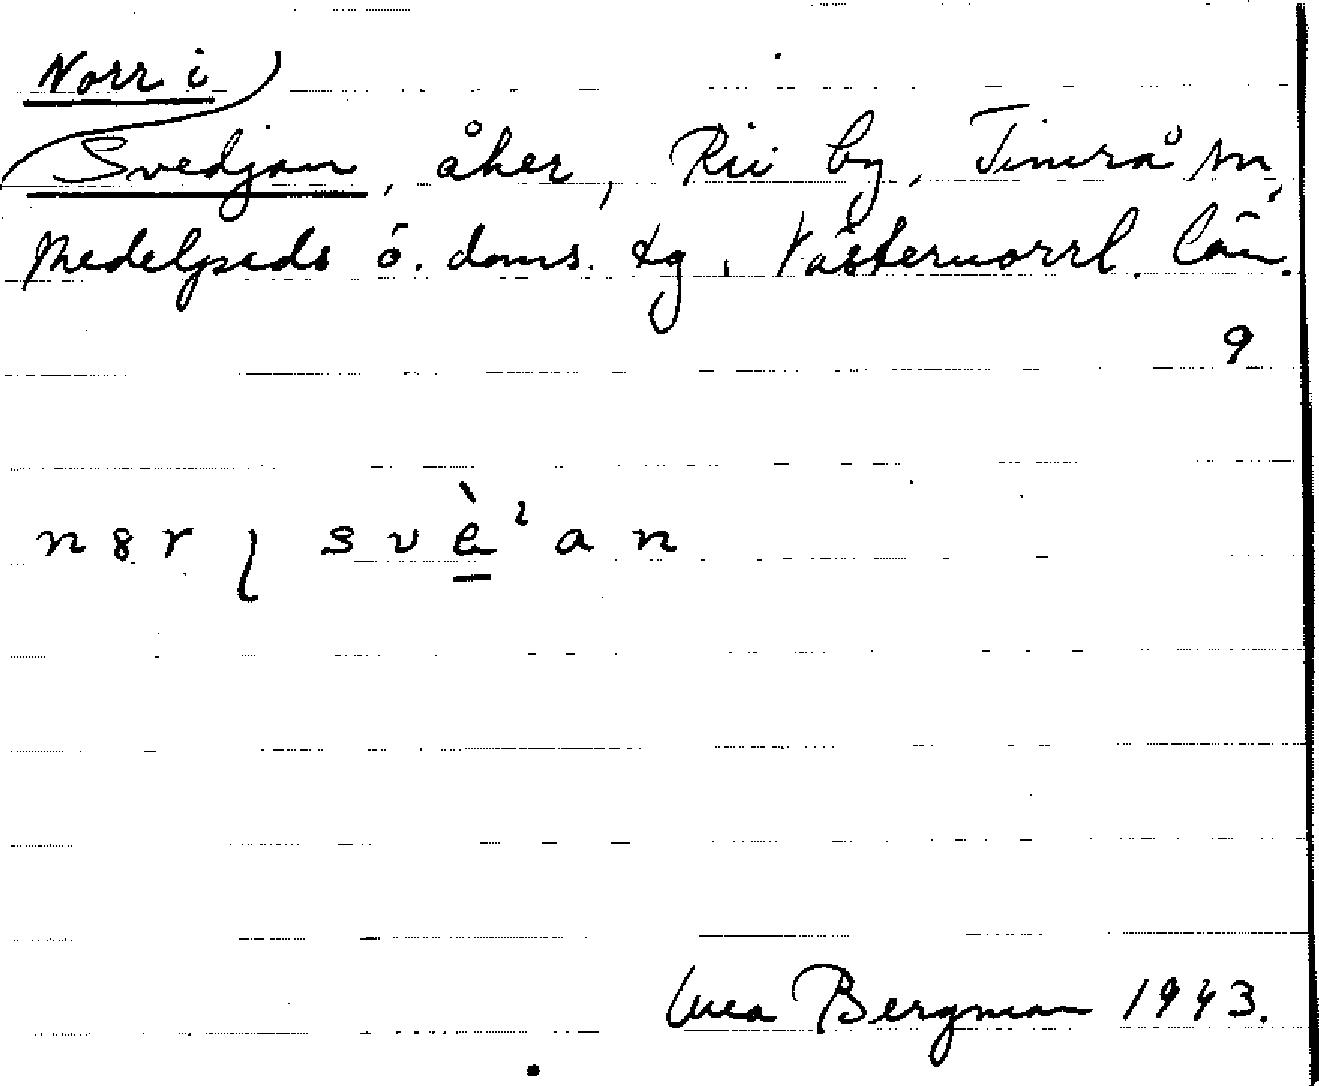 Norr i
Svedjan, åker, Rii by, Timrå sn,
Medelpads ö. doms. tg, Västernorrl. län.
9
n8r ʅ svè²an
Bergman 1943.